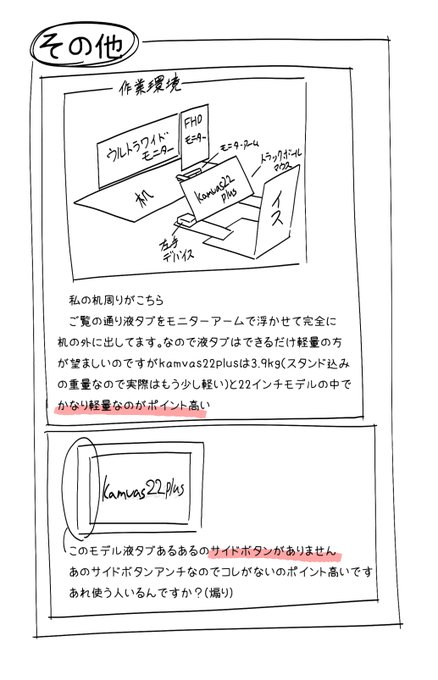 その他
作業環境
ウルトラワイド
モニター
FHD
モニター
モニターアーム
トラックボール
マウス
Kamvas22
plus
机
イス
左手
デバイス
私の机周りがこちら
ご覧の通り液タブをモニターアームで浮かせて完全に
机の外に出してます。なので液タブはできるだけ軽量の方
が望ましいのですがkamvas22plusは3.9kg(スタンド込み
の重量なので実際はもう少し軽い)と22インチモデルの中で
かなり軽量なのがポイント高い
Kamvas22plus
このモデル液タブあるあるのサイドボタンがありません
あのサイドボタンアンチなのでコレがないのポイント高いです
あれ使う人いるんですか?(煽り)